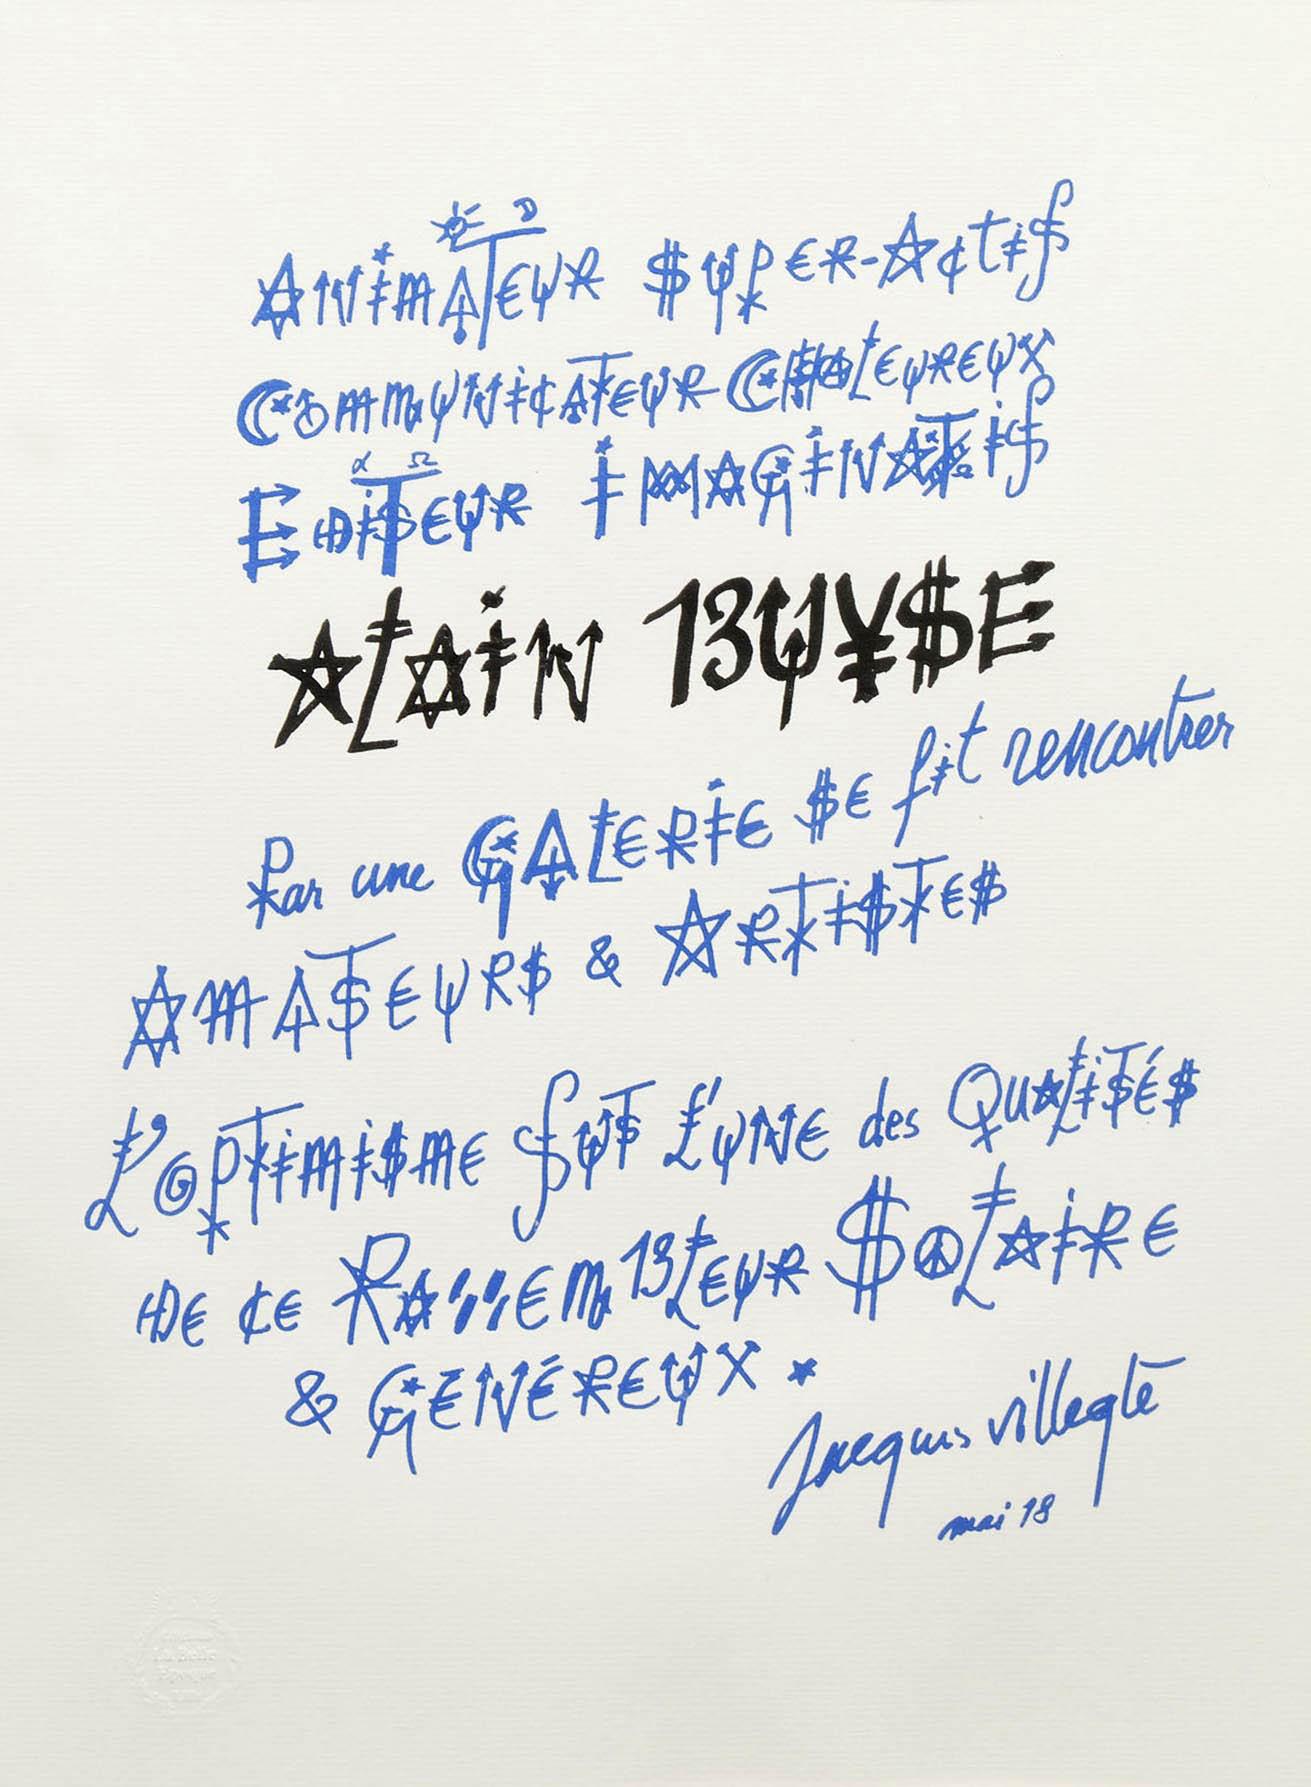 ANIMATEUR SUPER-ACTIF
COMMUNICATEUR CHALEUREUX
EDITEUR IMAGINATIF
ALAIN BUYSE
Par une GALERIE SE fit rencontrer
AMATEURS & ARTISTES
L'OPTIMISME FUT L'UNE des QUALITÉS
DE CE RASSEMBLEUR SOLAIRE
& GÉNÉREUX
Jacques villeglé
mai 18
La Belle
Epoque